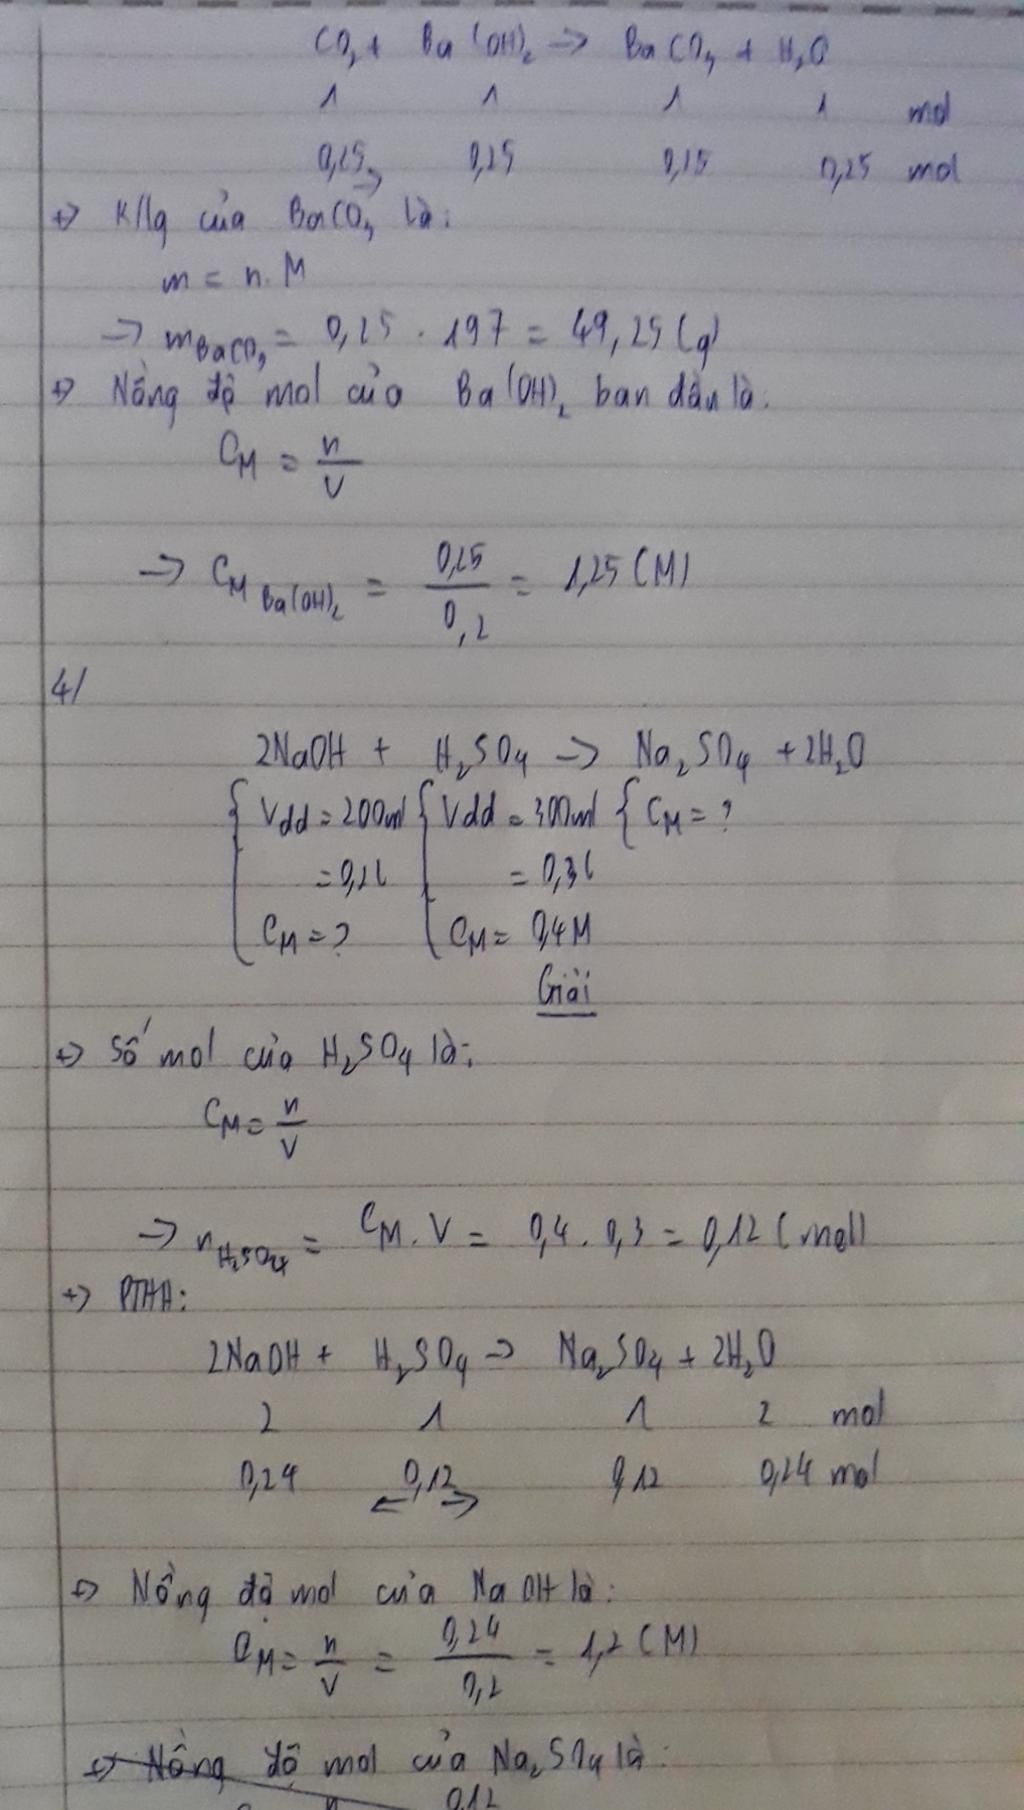 CO₂ + Ba(OH)₂ → BaCO₃ + H₂O
1 1 1 1 mol
0,25 0,25 0,25 0,25 mol
+> K/lg của BaCO₃ là:
m = n.M
→ mBaCO₃ = 0,25 . 197 = 49,25 (g)
+> Nồng độ mol của Ba(OH)₂ ban đầu là:
CM = n/V
→ CM Ba(OH)₂ = 0,25/0,2 = 1,25 (M)
4/
2NaOH + H₂SO₄ → Na₂SO₄ + 2H₂O
{ Vdd = 200ml { Vdd = 300ml { CM = ?
= 0,2l = 0,3l
CM = ? CM = 0,4M
Giải
+> Số mol của H₂SO₄ là:
CM = n/V
→ nH₂SO₄ = CM.V = 0,4 . 0,3 = 0,12 (mol)
+> PTHH:
2NaOH + H₂SO₄ → Na₂SO₄ + 2H₂O
2 1 1 2 mol
0,24 0,12 0,12 0,24 mol
+> Nồng độ mol của NaOH là:
CM = n/V = 0,24/0,2 = 1,2 (M)
+> Nồng độ mol của Na₂SO₄ là:
0,12